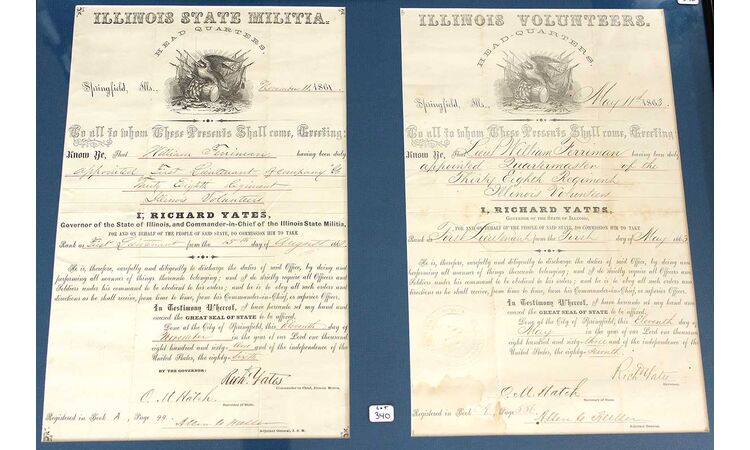 ILLINOIS STATE MILITIA.
HEAD QUARTERS,
Springfield, Ills., 11, 1861.
To all to whom These Presents Shall come, Greeting:
Know Ye, That William Ferriman having been duly
appointed First Lieutenant of Company G
Thirty Eighth Regiment
Illinois Volunteers
I, RICHARD YATES,
Governor of the State of Illinois, and Commander-in-Chief of the Illinois State Militia,
FOR AND ON BEHALF OF THE PEOPLE OF SAID STATE, DO COMMISSION HIM TO TAKE
Rank as First Lieutenant from the 15th day of August 186
He is, therefore, carefully and diligently to discharge the duties of said Office, by doing and
performing all manner of things thereunto belonging; and I do strictly require all Officers and
Soldiers under his command to be obedient to his orders; and he is to obey all such orders and
directions as he shall receive, from time to time, from his Commander-in-Chief, or superior Officer.
In Testimony Whereof, I have hereunto set my hand and
caused the GREAT SEAL OF STATE to be affixed.
Done at the City of Springfield, this Eleventh day of
in the year of our Lord one thousand
eight hundred and sixty-one and of the independence of the
United States, the eighty-sixth
BY THE GOVERNOR:
Richd Yates
Commander-in-Chief, Illinois Militia.
O. M. Hatch
Secretary of State.
Registered in Book A, Page 99.
Allen C Fuller
Adjutant General, I. S. M.
LOT
340
ILLINOIS VOLUNTEERS.
HEAD-QUARTERS,
Springfield, Ills., May 11th 1863.
To all to whom These Presents Shall come, Greeting:
Know Ye, That Lieut William Ferriman having been duly
appointed Quartermaster of the
Thirty Eighth Regiment
Illinois Volunteers
I, RICHARD YATES,
GOVERNOR OF THE STATE OF ILLINOIS,
FOR AND ON BEHALF OF THE PEOPLE OF SAID STATE, DO COMMISSION HIM TO TAKE
Rank as First Lieutenant from the First day of May 1863
He is, therefore, carefully and diligently to discharge the duties of said Office, by doing and
performing all manner of things thereunto belonging; and I do strictly require all Officers and
Soldiers under his command to be obedient to his orders; and he is to obey all such orders and
directions as he shall receive, from time to time, from his Commander-in-Chief, or superior Officer.
In Testimony Whereof, I have hereunto set my hand and
caused the GREAT SEAL OF STATE to be affixed.
Done at the City of Springfield, this Eleventh day of
May in the year of our Lord one thousand
eight hundred and sixty-three and of the independence of the
United States, the eighty-seventh.
Richd Yates
Governor.
O. M. Hatch
Secretary of State.
Registered in Book Page
Allen C Fuller
Adjutant General.